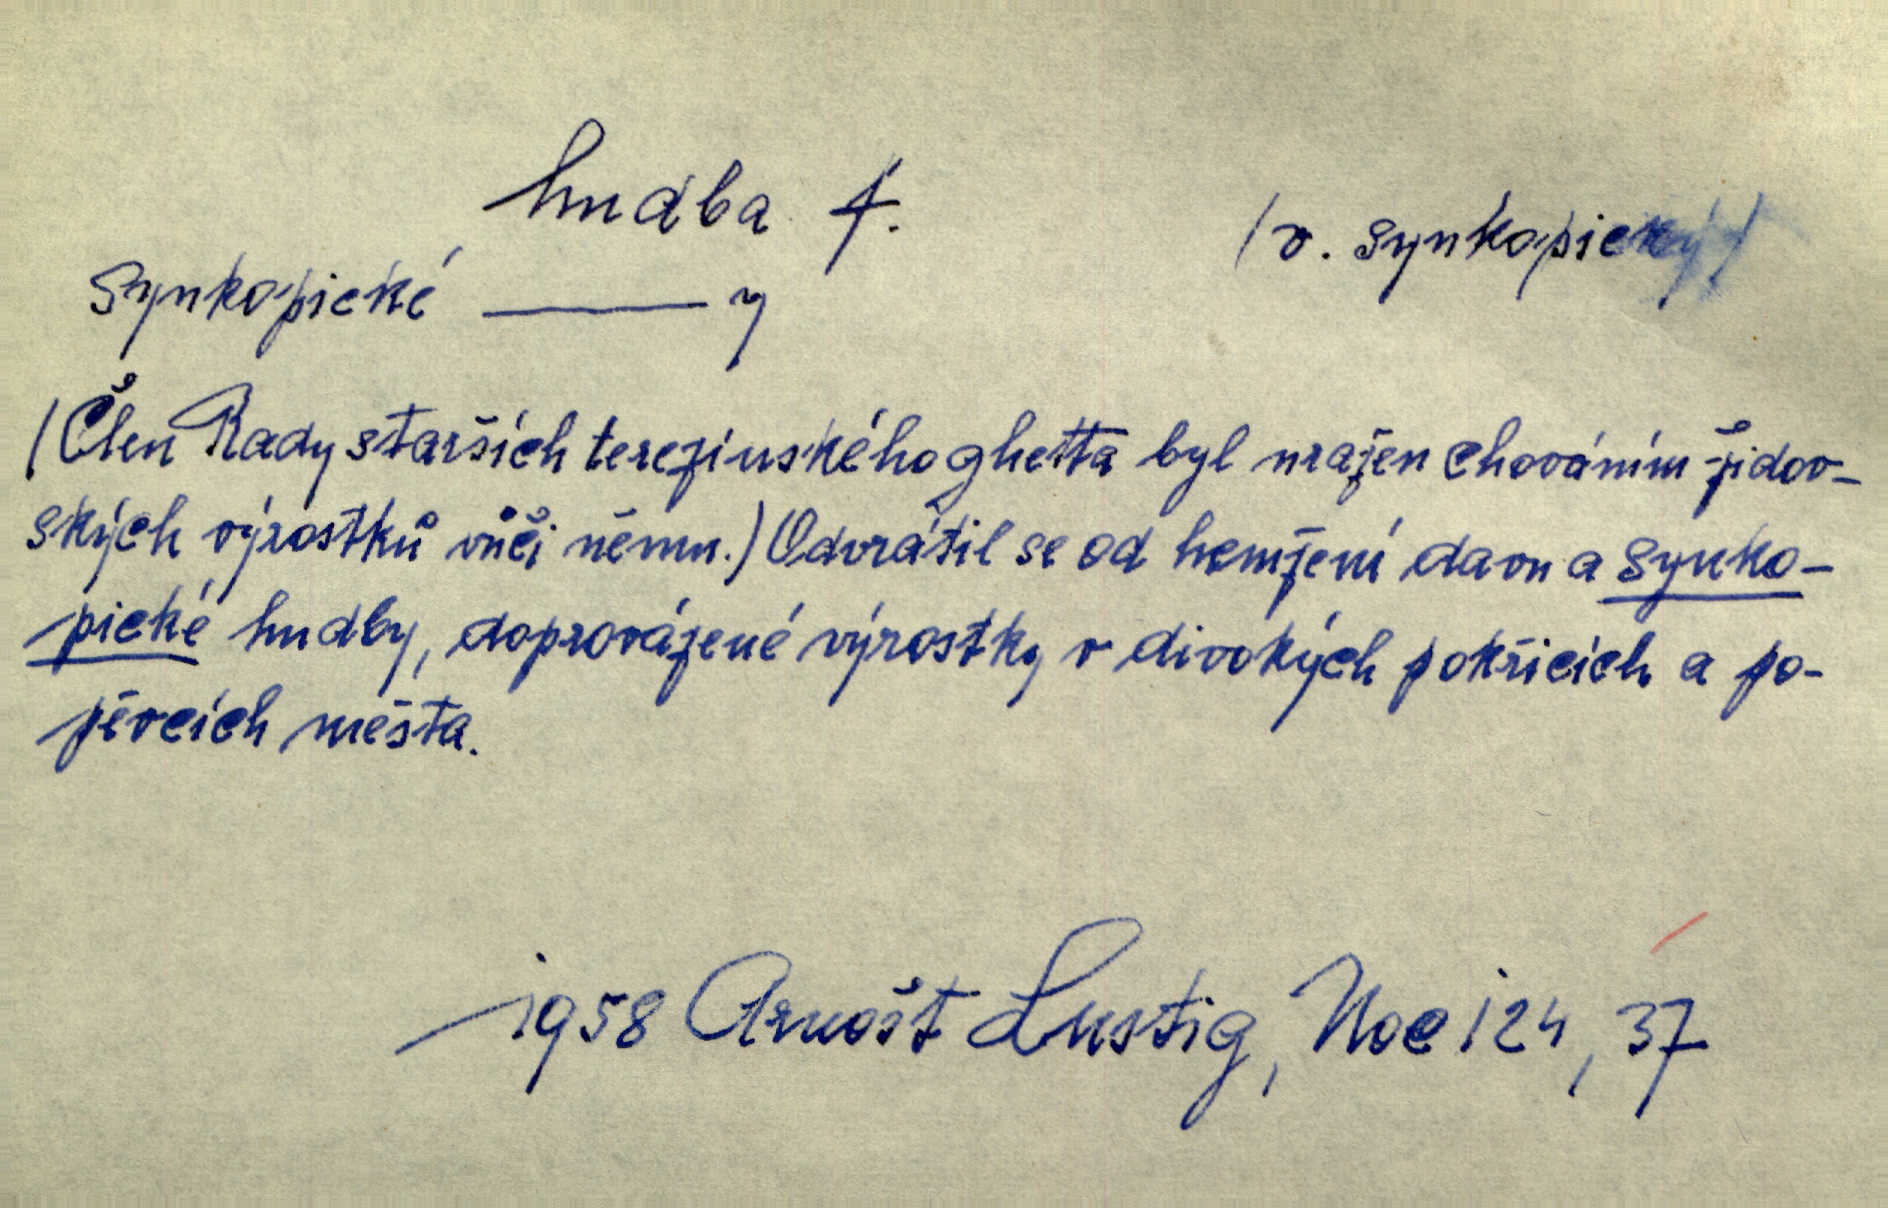 hudba f.
/v. synkopický/
synkopické ——— y
/Člen Rady starších terezínského ghetta byl uražen chováním židov-
ských výrostků vůči němu./ Odvrátil se od hemžení davu a synko-
pické hudby, doprovázené výrostky v divokých pokřicích a po-
pěvcích města.
1958 Arnošt Lustig, Noc i 24, 37